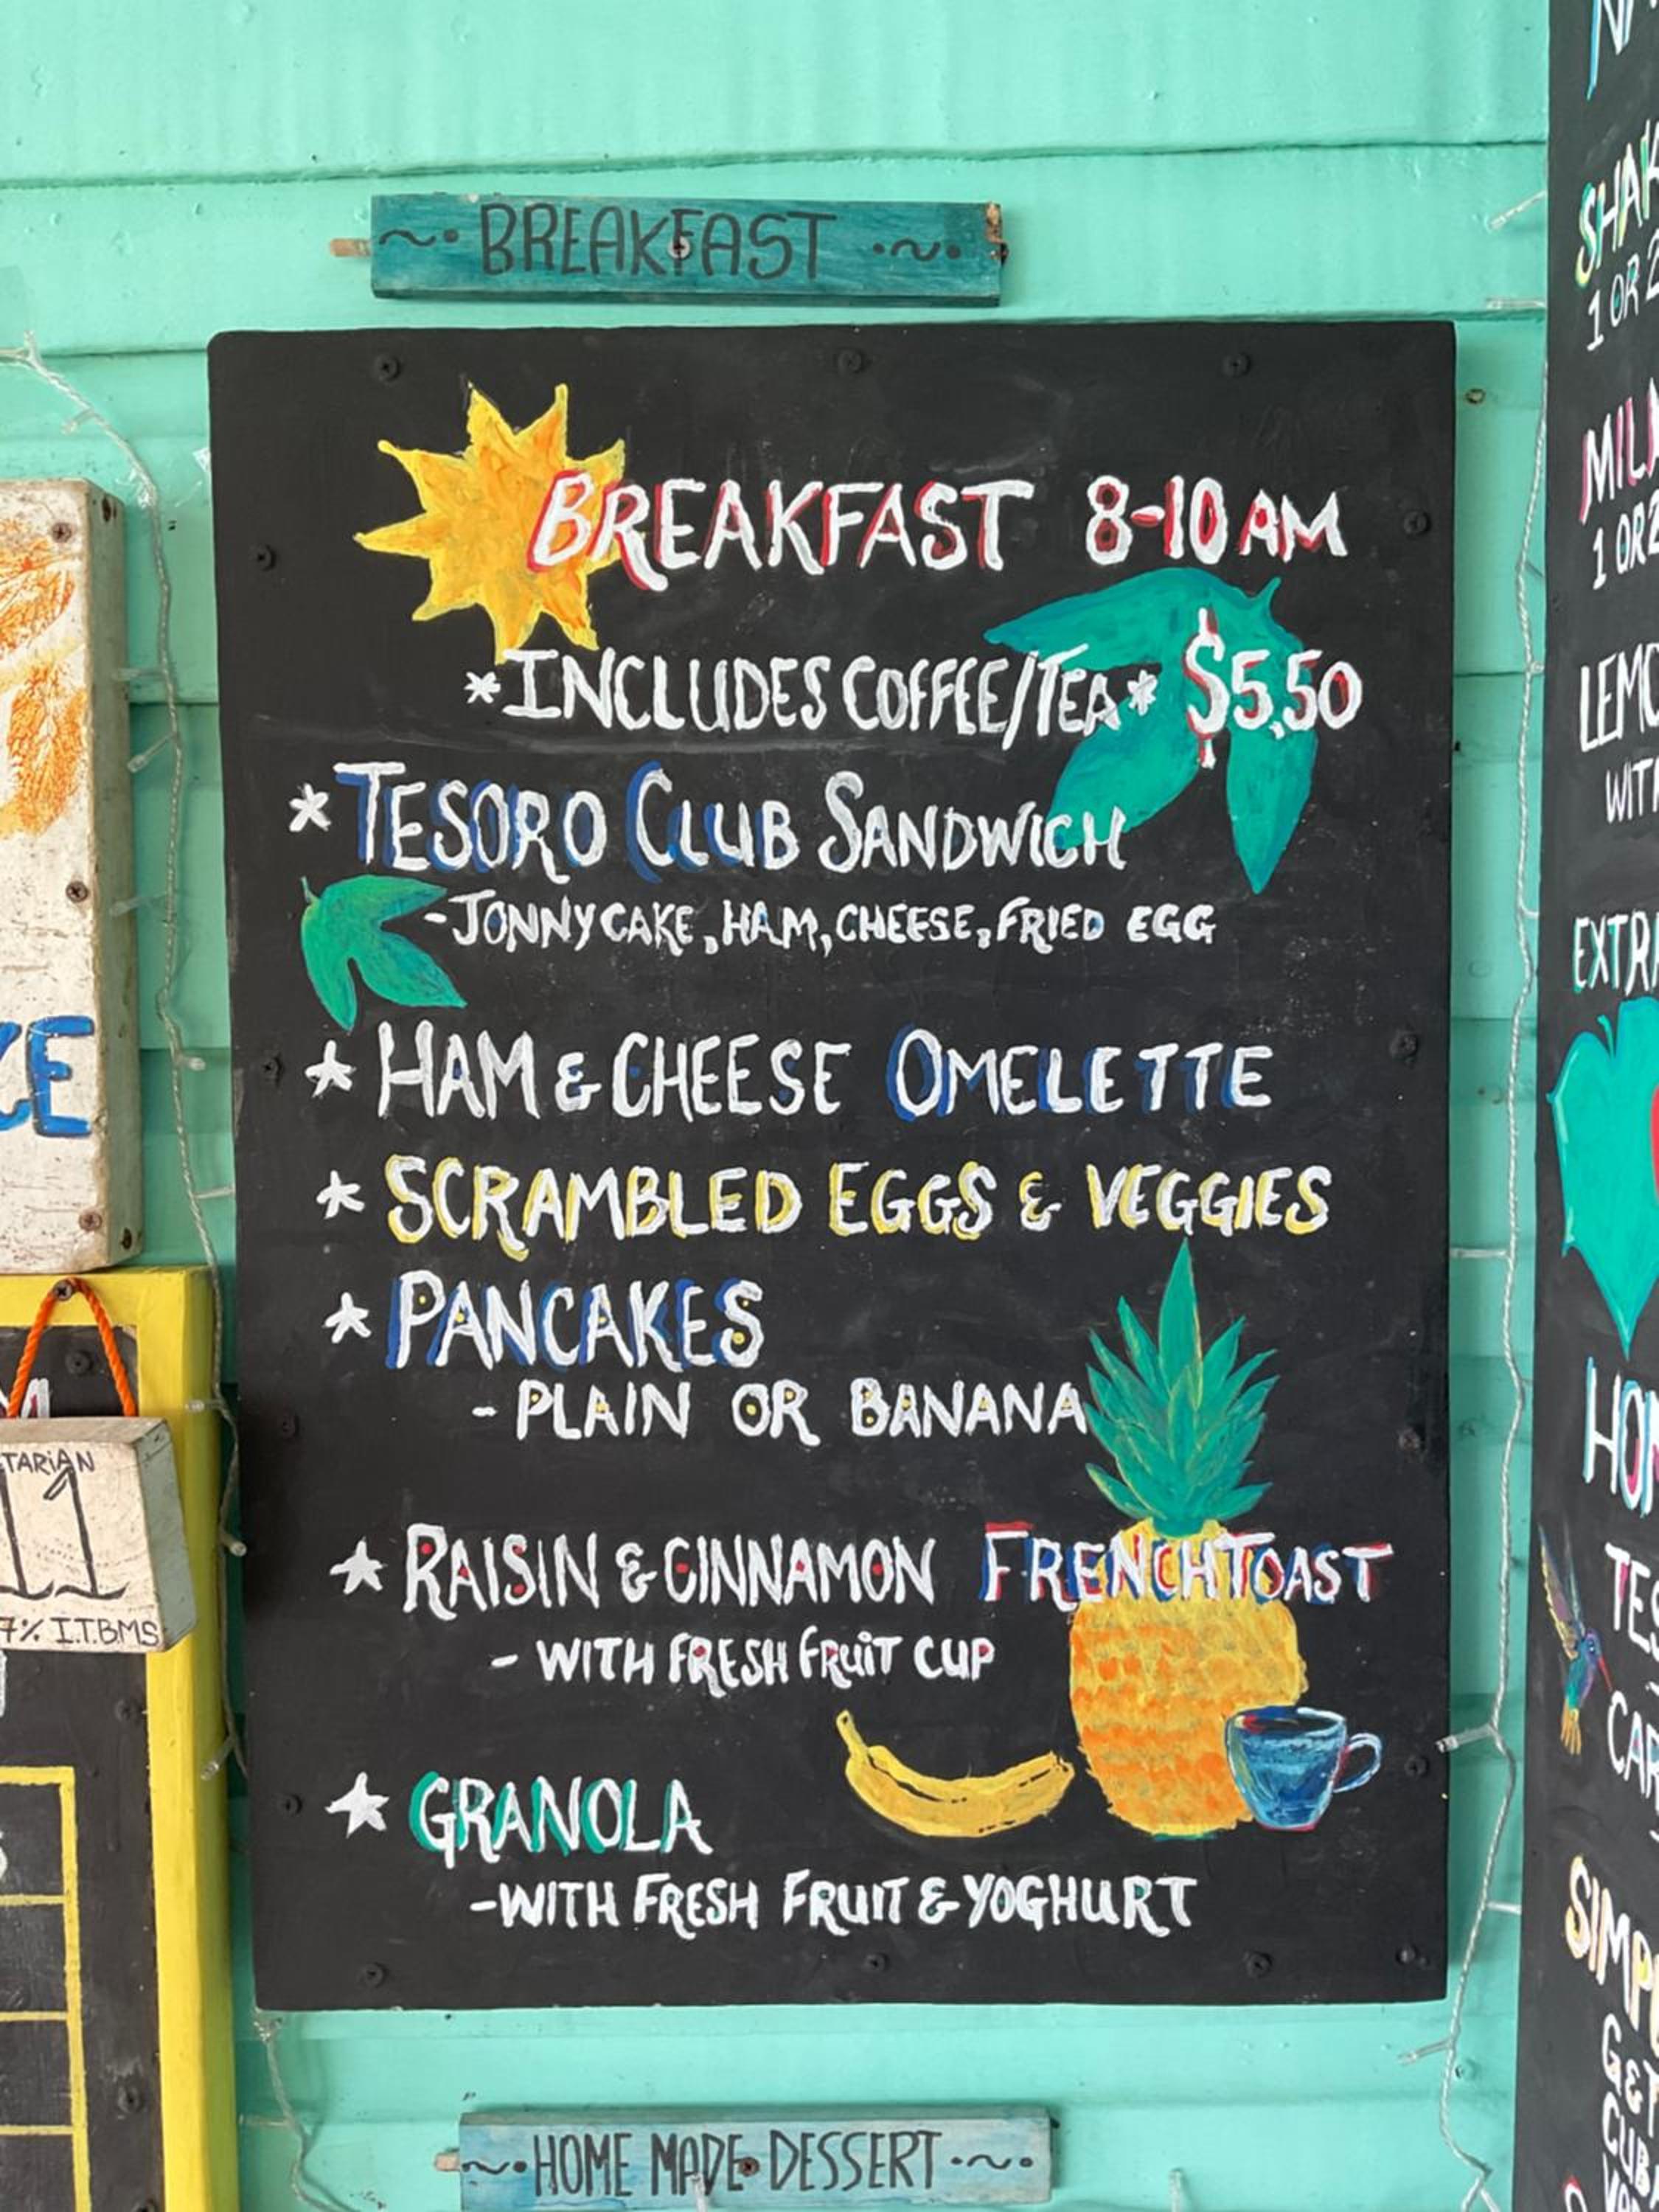 ~• BREAKFAST •~•
BREAKFAST 8-10 AM
*INCLUDES COFFEE/TEA* $5,50
* TESORO CLUB SANDWICH
-JONNYCAKE, HAM, CHEESE, FRIED EGG
* HAM & CHEESE OMELETTE
* SCRAMBLED EGGS & VEGGIES
* PANCAKES
- PLAIN OR BANANA
* RAISIN & CINNAMON FRENCH TOAST
- WITH FRESH FRUIT CUP
* GRANOLA
-WITH FRESH FRUIT & YOGHURT
~• HOME MADE • DESSERT •~•
TARIAN
11
7% I.T.B.M.S
SHAK
1 OR 2
MIL
1 OR 2
LEMO
WITH
EXTR
HOM
TES
CAR
SIMP
G&T
CUB